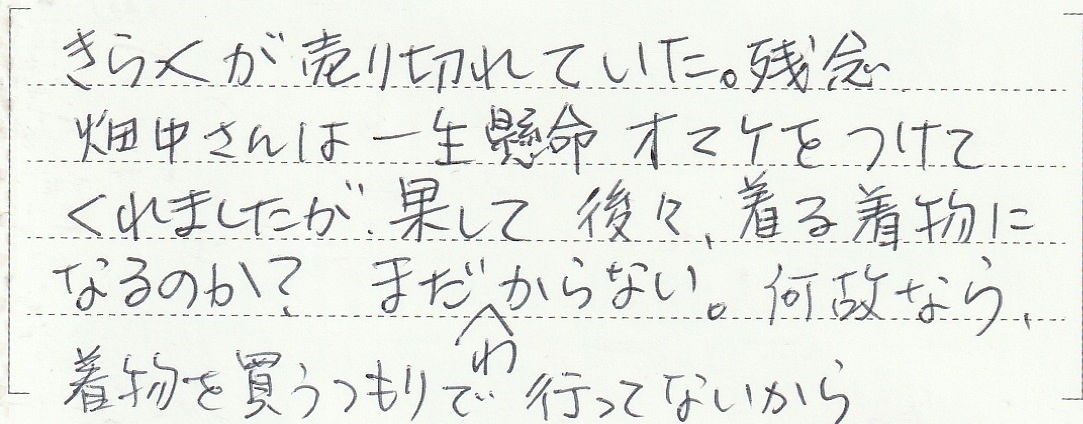 きらくが売り切れていた。残念
畑中さんは一生懸命オマケをつけて
くれましたが、果して 後々、着る着物に
なるのか? まだわからない。何故なら、
着物を買うつもりで行ってないから